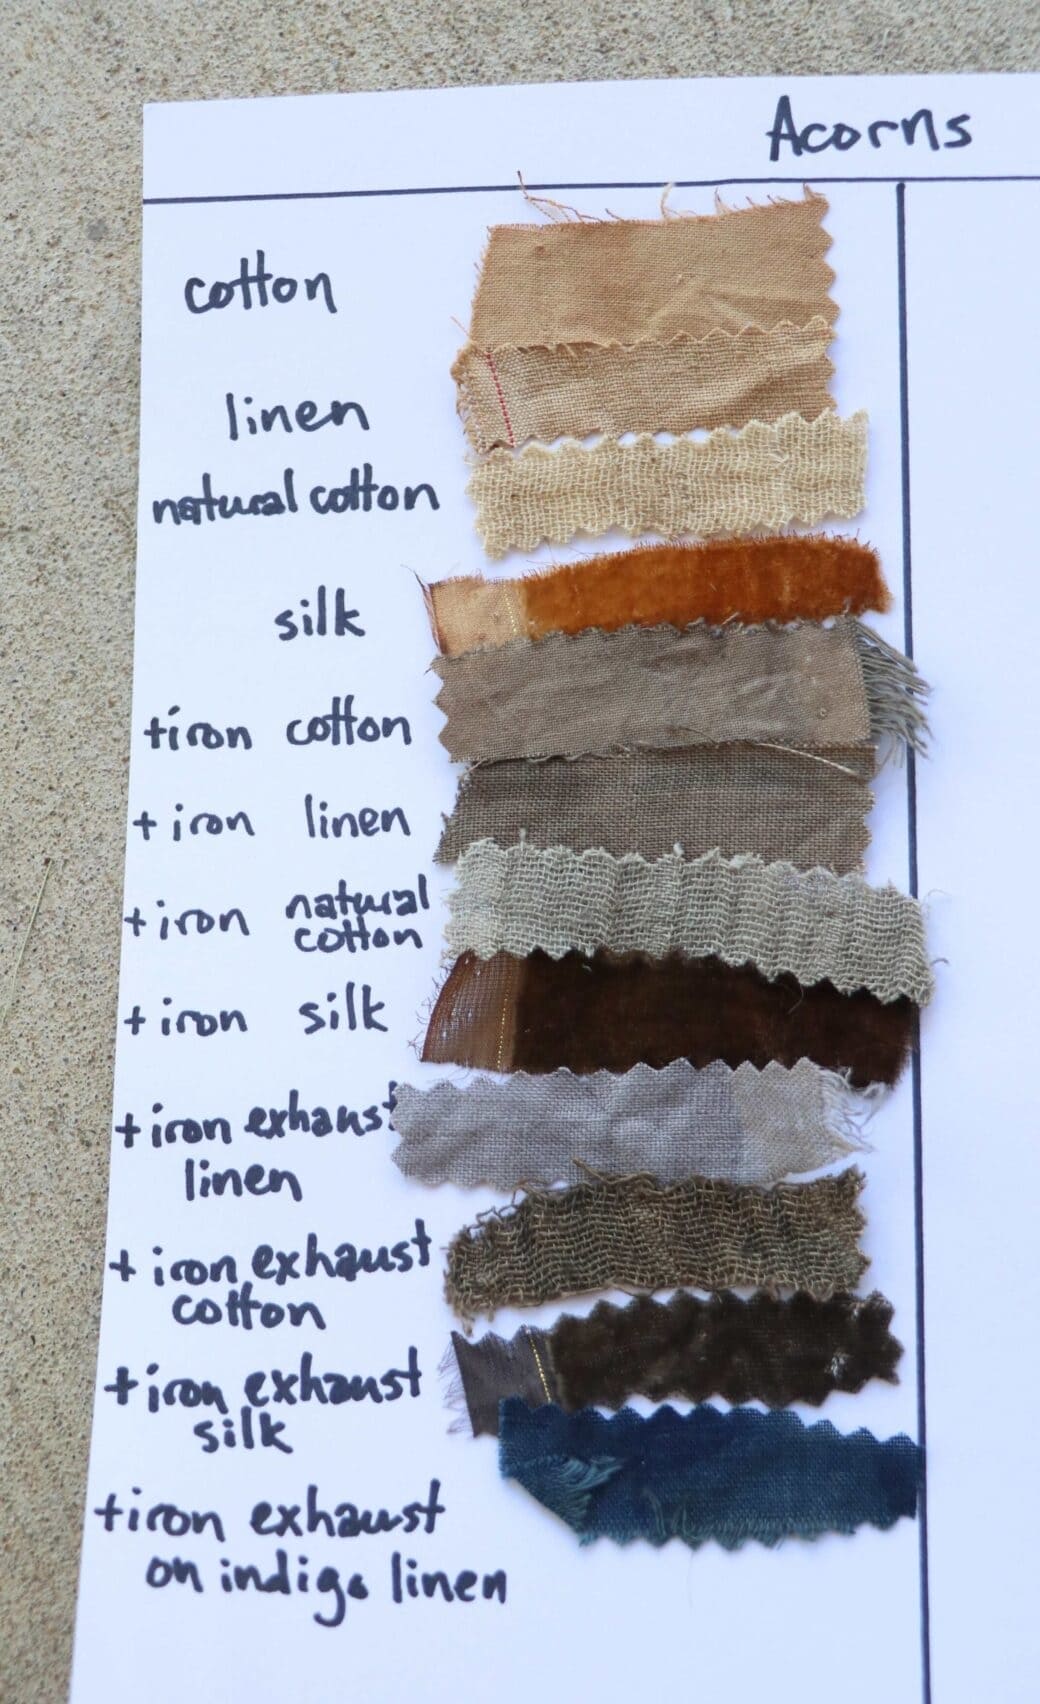 Acorns
cotton
linen
natural cotton
silk
+iron cotton
+iron linen
+iron natural
cotton
+iron silk
+iron exhaust
linen
+iron exhaust
cotton
+iron exhaust
silk
+iron exhaust
on indigo linen